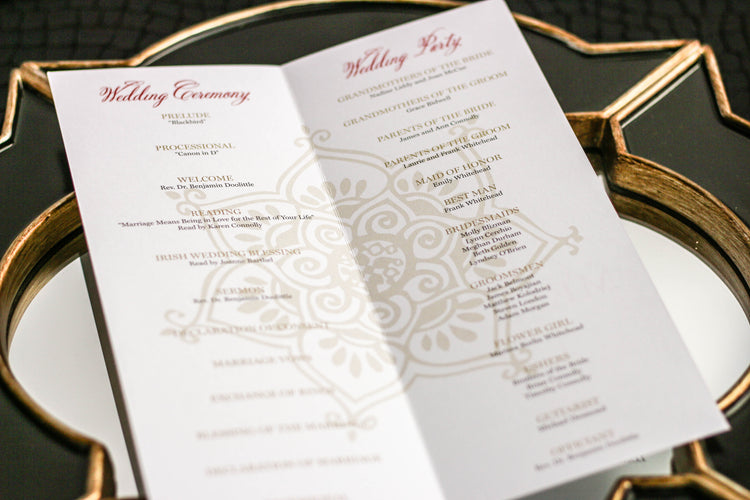 Wedding Ceremony
PRELUDE
"Blackbird"
PROCESSIONAL
"Canon in D"
WELCOME
Rev. Dr. Benjamin Doolittle
READING
"Marriage Means Being in Love for the Rest of Your Life"
Read by Karen Connolly
IRISH WEDDING BLESSING
Read by Joanne Barthel
SERMON
Rev. Dr. Benjamin Doolittle
DECLARATION OF CONSENT
MARRIAGE VOWS
EXCHANGE OF RINGS
BLESSING OF THE MARRIAGE
DECLARATION OF MARRIAGE
Wedding Party
GRANDMOTHERS OF THE BRIDE
Nadine Liddy and Joan McCue
GRANDMOTHERS OF THE GROOM
Grace Bidwell
PARENTS OF THE BRIDE
James and Ann Connolly
PARENTS OF THE GROOM
Laurie and Frank Whitehead
MAID OF HONOR
Emily Whitehead
BEST MAN
Frank Whitehead
BRIDESMAIDS
Molly Blizman
Lynn Cerchio
Meghan Durham
Beth Golden
Lyndsey O'Brien
GROOMSMEN
Jack Belmont
Matthew Kolodziej
Steven London
Adam Morgan
FLOWER GIRL
Whitehead
USHERS
Brothers of the Bride
Brian Connolly
Timothy Connolly
GUITARIST
Michael
OFFICIANT
Rev. Dr. Benjamin Doolittle